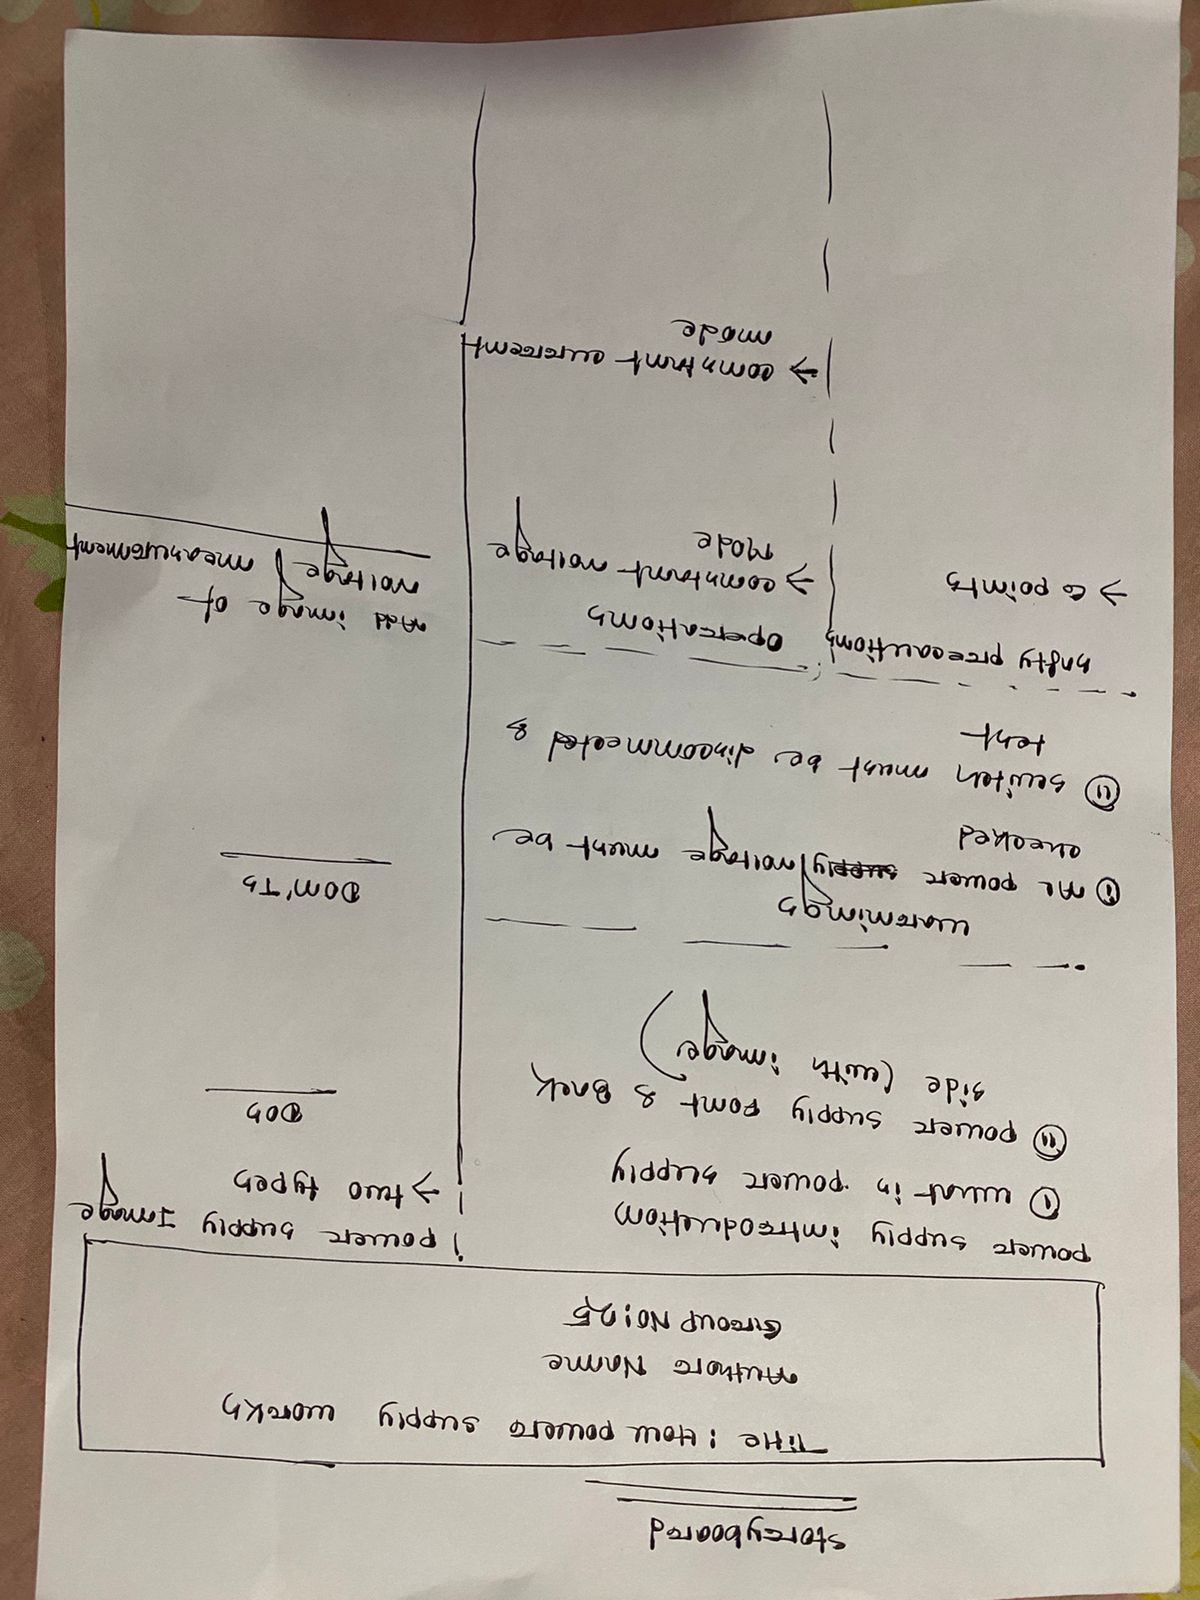 Storyboard
Title : How power supply works
Author Name
Group No: 25
power supply introduction
i what is power supply
ii power supply Font & Back
side (with image)
warnings
i AC power supply voltage must be
checked
ii switch must be disconnected &
test
safty precautions
→ 6 points
operations
→ constant voltage
Mode
→ constant current
mode
power supply Image
→ two types
Dos
Don'Ts
Add image of
voltage measurement